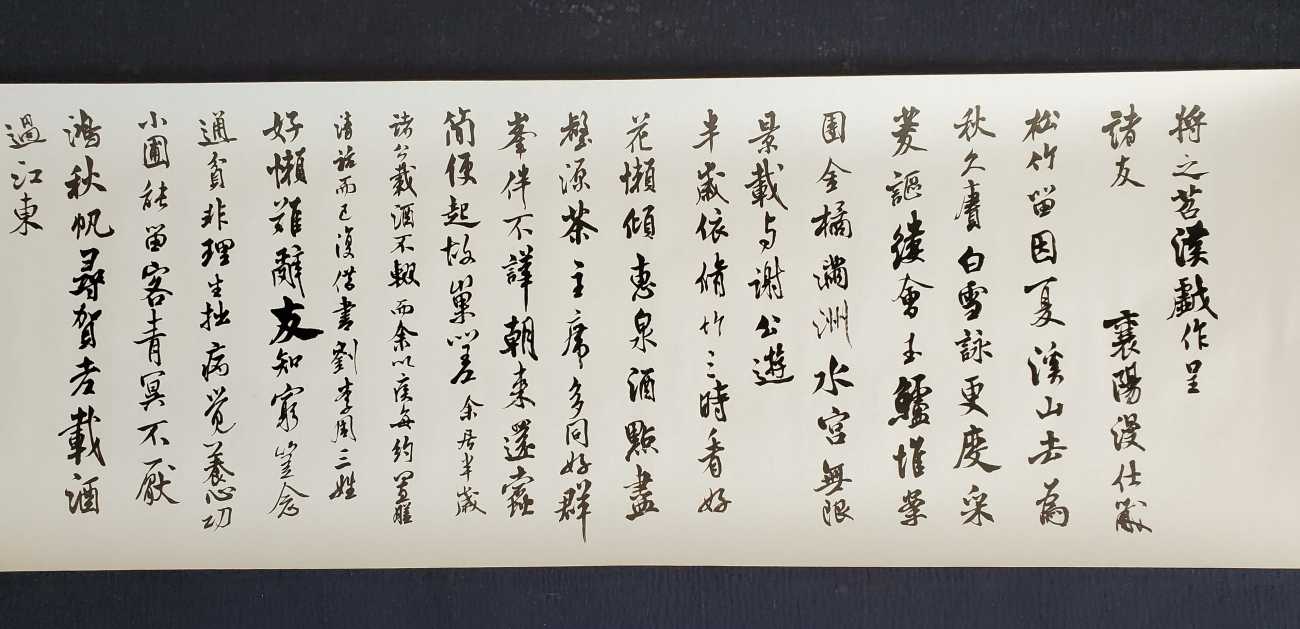 將之苕溪戲作呈
諸友 襄陽漫仕黻
松竹留因夏溪山去為
秋久賡白雪詠更度采
菱謳縷會玉鱸堆案
團金橘滿洲水宮無限
景載与謝公遊
半歲依脩竹三時看好
花懶傾惠泉酒點盡
壑源茶主席多同好群
峯伴不譁朝來還蠹
簡便起故巢嗟 余居半歲
諸公載酒不輟而余以疾每約置膳
清話而已復借書劉李周三姓
好懶難辭友知窮豈念
通貧非理生拙病覺養心功
小圃能留客青冥不厭
鴻秋帆尋賀老載酒
過江東